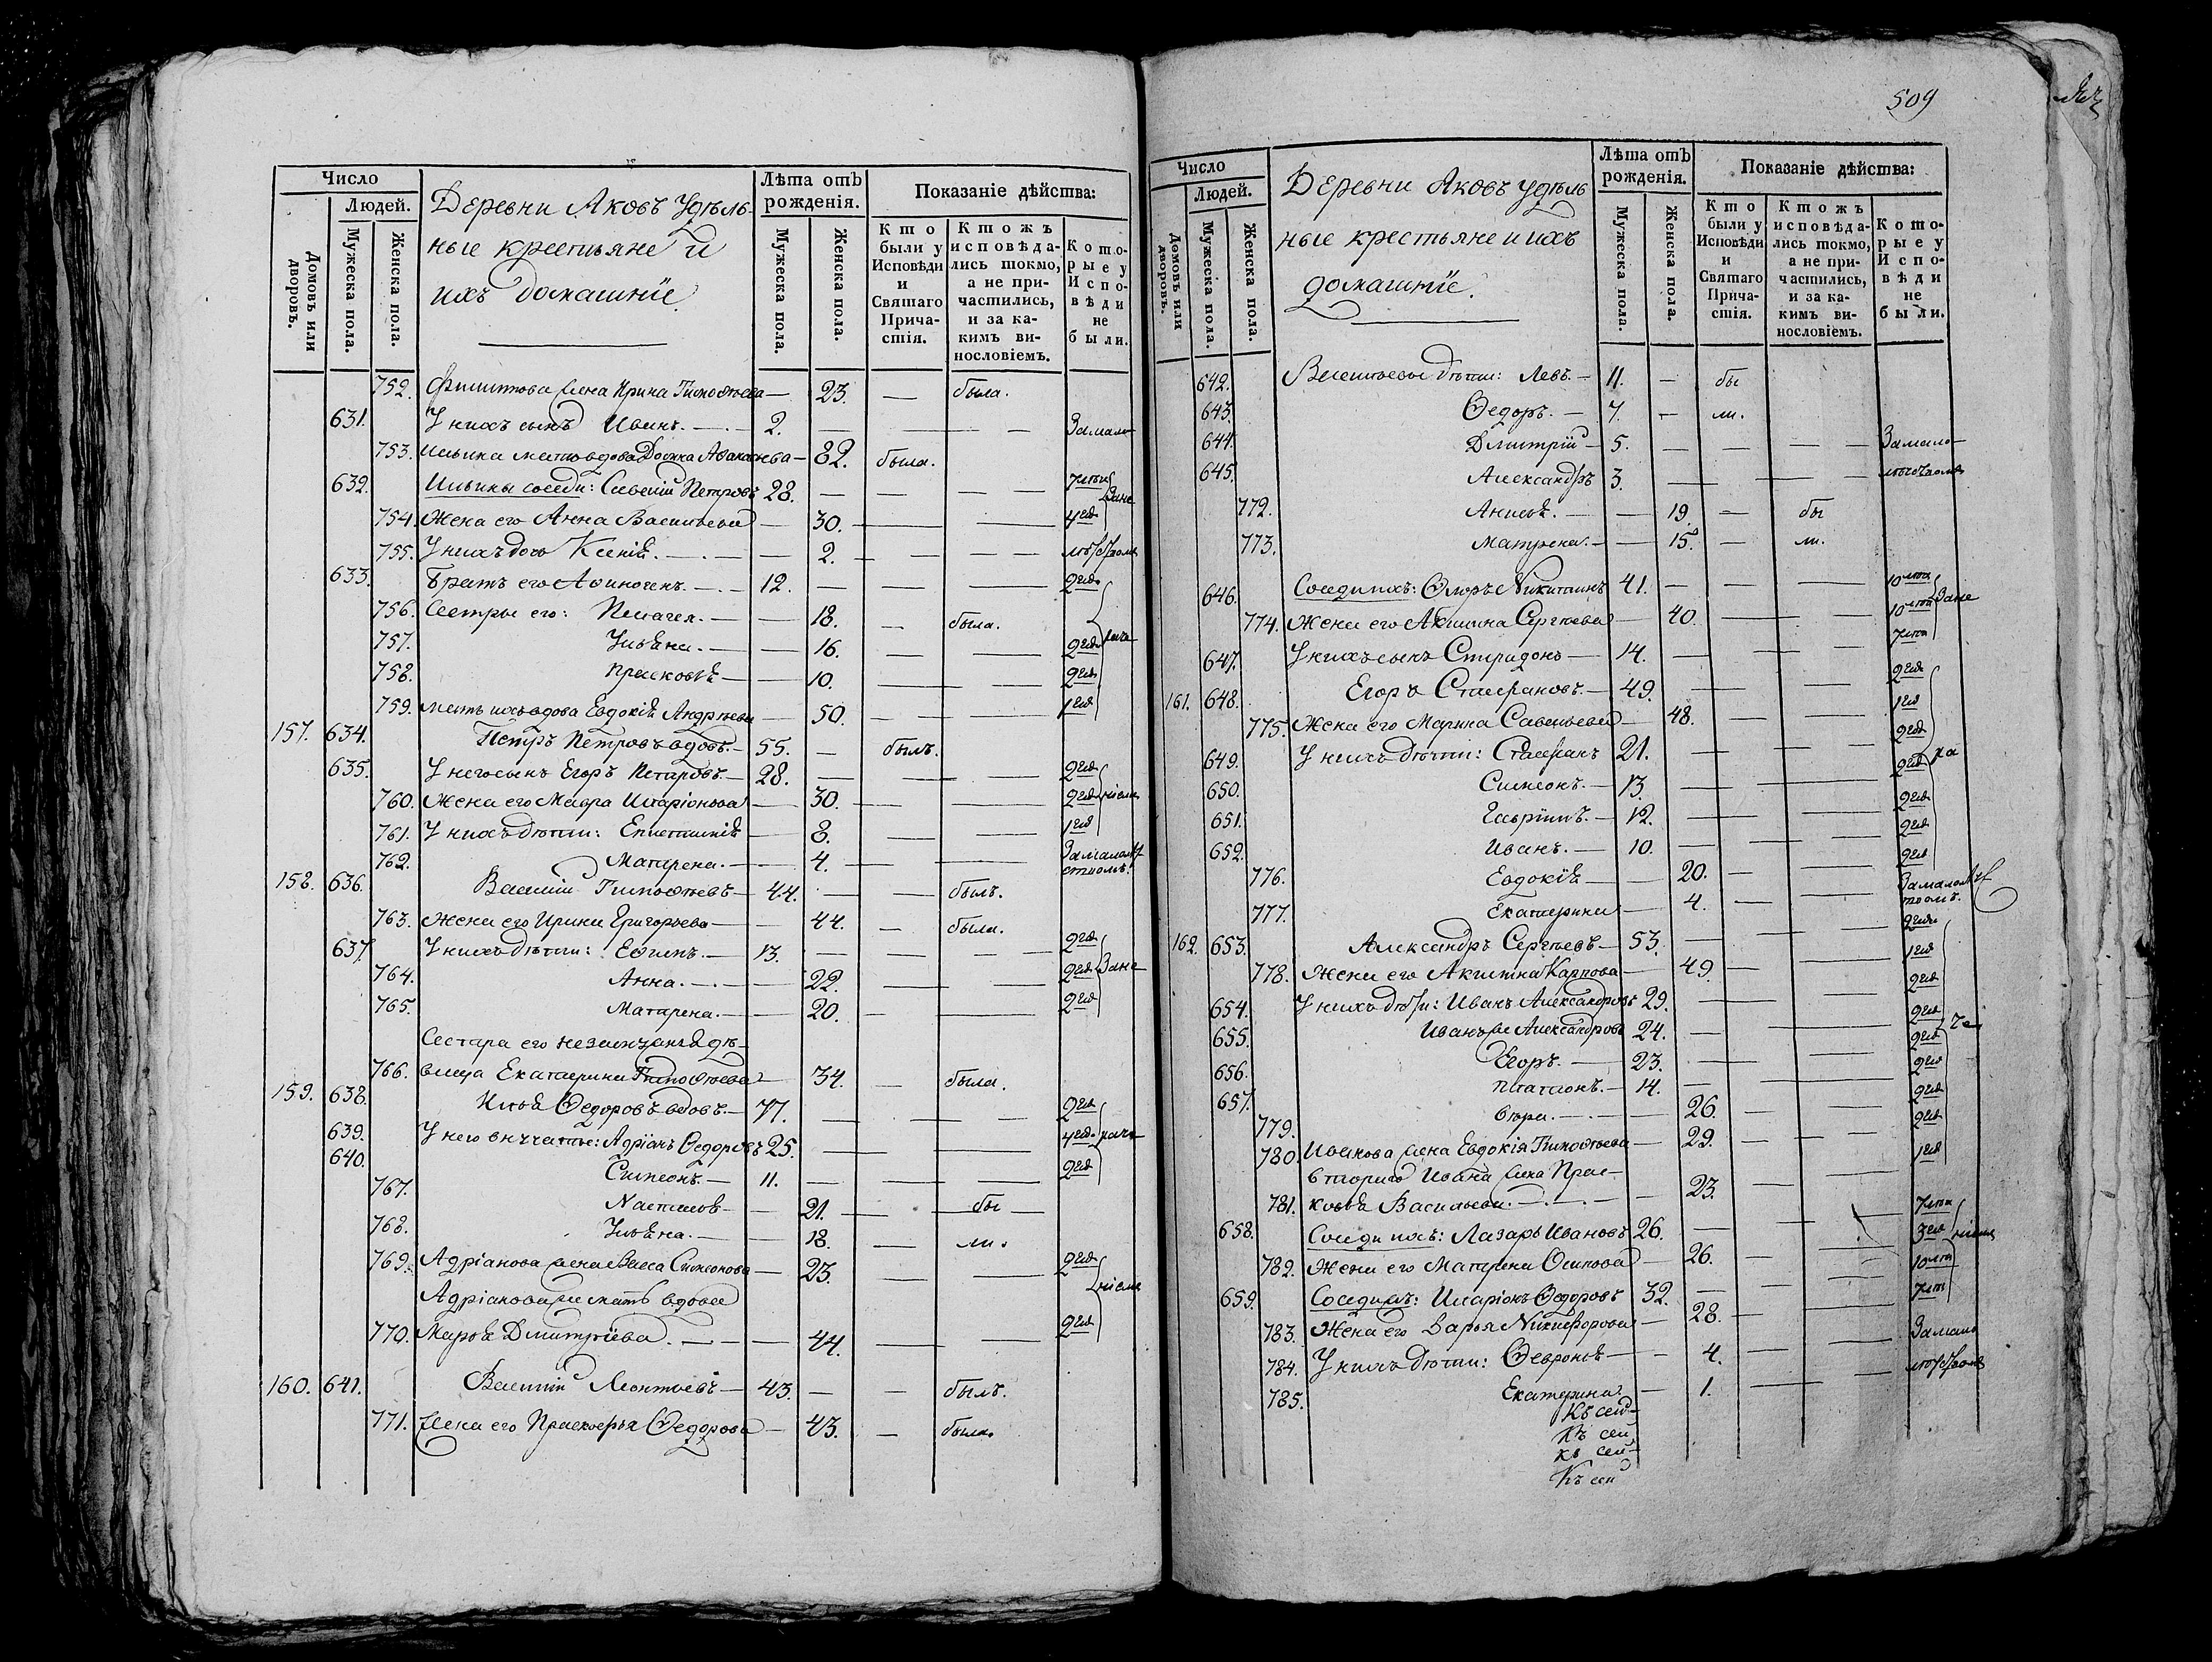 Число
Людей.
Домовъ или дворовъ.
Мужеска пола.
Женска пола.
Деревни Аковъ Удѣль-
ные крестьяне и
ихъ домашнїе.
Лѣта отъ рожденія.
Мужеска пола.
Женска пола.
Показаніе дѣйства:
Кто были у Исповѣди и Святаго Причастія.
Ктожъ исповѣдались токмо, а не причастились, и за какимъ винословіемъ.
Которые у Исповѣди не были.
752. Филиппова жена Ирина Тимофѣева — 23. — была.
631. У нихъ сынъ Иванъ. — 2. — — Замало-
753. Ильина мать вдова 82. была.
632. Ильины соседи: Савелій Петровъ 28. — — — 7лѣтъ Зане
754. Жена его Анна Васильева — 30. — — 4год
755. У нихъ дочь Ксенія. — 2. — — —
633. Братъ его Афиногенъ. — 12. — — — 2год
756. Сестры его: Пелагея. — 18. — была.
757. Ульяна. — 16. — — 2год раче
758. Прасковья — 10. — — 2год
759. Мать ихъ вдова Евдокія Андрѣева — 50. — — 1год
157. 634. Петръ Петровъ вдовъ. — 55. — былъ.
635. У него сынъ Егоръ Петровъ. — 28. — — — 2год
760. Жена его Мавра Иларіонова — 30. — — 2год нїемъ
761. У нихъ дѣти: Епистимия — 8. — — 1год
762. Матрена. — 4. — — Замалолѣтствомъ.
158. 636. Василій Тимофѣевъ — 44. — былъ.
763. Жена его Ирина Григорьева — 44. — была.
637. У нихъ дѣти: Ефимъ. — 13. — — — 2год
764. Анна. — 22. — — 2год Зане
765. Матрена. — 20. — — 2год
Сестра его незамужняя дѣ-
766. вица Екатерина Тимофѣева — 34. — была.
159. 638. Илья Федоровъ вдовъ. — 77. — — — 2год
639. У него внучата: Адріанъ Федоровъ 25. — — — 4год раче
640. Симеонъ. — 11. — — — 2год
767. Настасья — 21. — бы
768. Ульяна. — 18. — ли.
769. Адріанова жена Васса Симеонова — 23. — — 2год нїемъ
Адріанова же мать вдова
770. Марфа Дмитріева. — 44. — — 2год
160. 641. Василій Леонтьевъ — 43. — — былъ.
771. Жена его Прасковья Федорова — 43. — была.
509
Число
Людей.
Домовъ или дворовъ.
Мужеска пола.
Женска пола.
Деревни Аковъ удѣль
ные крестьяне и ихъ
домашнїе.
Лѣта отъ рожденія.
Мужеска пола.
Женска пола.
Показаніе дѣйства:
Кто были у Исповѣди и Святаго Причастія.
Ктожъ исповѣдались токмо, а не причастились, и за какимъ винословіемъ.
Которые у Исповѣди не были.
642. Васильевы дѣти: Левъ. — 11. — бы
643. Федоръ. — 7. — ли.
644. Дмитрій — 5. — — — Замало-
645. Александръ 3. — — — лѣтствомъ
772. Анисья. — 19. — бы
773. Матрена. — 15. — ли.
646. Соседи ихъ: Никитинъ 41. — — — 10лѣтъ Зане
774. Жена его Акилина Сергѣева — 40. — — 10лѣтъ
647. У нихъ сынъ Спиридонъ — 14. — — — 7лѣтъ
161. 648. Егоръ Стафановъ. — 49. — — 2год
775. Жена его Марина Савельева — 48. — — 1год
649. У нихъ дѣти: Стафанъ 21. — — — 2год ра
650. Симеонъ. — 13. — — 2год
651. Гаврїилъ. — 12. — — 2год
652. Иванъ. — 10. — — 2год
776. Евдокія — 20. — — 2год
777. Екатерина — 4. — — Замалолѣтствомъ.
162. 653. Александръ Сергѣевъ — 53. — — 2год
778. Жена его Акилина Карпова — 49 — — 1год
654. У нихъ дѣти: Иванъ Александровъ 29. — — 2год
655. Иванъ же Александровъ 24. — — 2год
656. Егоръ. — 23. — — 2год
657. Платонъ. — 14. — — 2год
779. Вѣра. — 26. — — 2год
780. Иванова жена Евдокія Тимофѣева — 29. — — 2год
Втораго Ивана жена Прас-
781. ковья Васильева. — 23. — — 1год
658. Соседи ихъ: Лазарь Ивановъ 26. — — 7лѣтъ
782. Жена его Матрена Осипова — 26. — — 3год нїемъ
659. Соседи ихъ: Иларіонъ Федоровъ 32. — — 10лѣтъ
783. Жена его Дарья Никифорова — 28. — — 7лѣтъ
784. У нихъ дѣти: Февронья — 4. — — Замало
785. Екатерина. — 1. — — лѣтствомъ
Къ сей
Къ сей
Къ сей
Къ сей